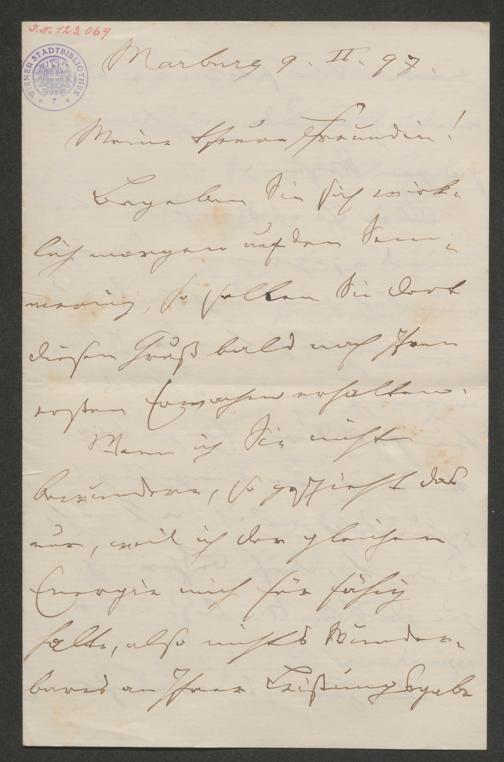 I.N. 123.069
WIENER STADTBIBLIOTHEK
Marburg 9. II. 97.
Meine theure Freundin!
Begeben Sie sich wirk-
lich morgen auf den Sem-
mering, so sollen Sie dort
diesen Gruß bald nach Ihrem
ersten Erwachen erhalten.
Wenn ich Sie nicht
bewundere, so geschieht das
nur, weil ich der gleichen
Energie mich für fähig
halte, also nichts Wunder-
bares an Ihrer Leistungsgabe